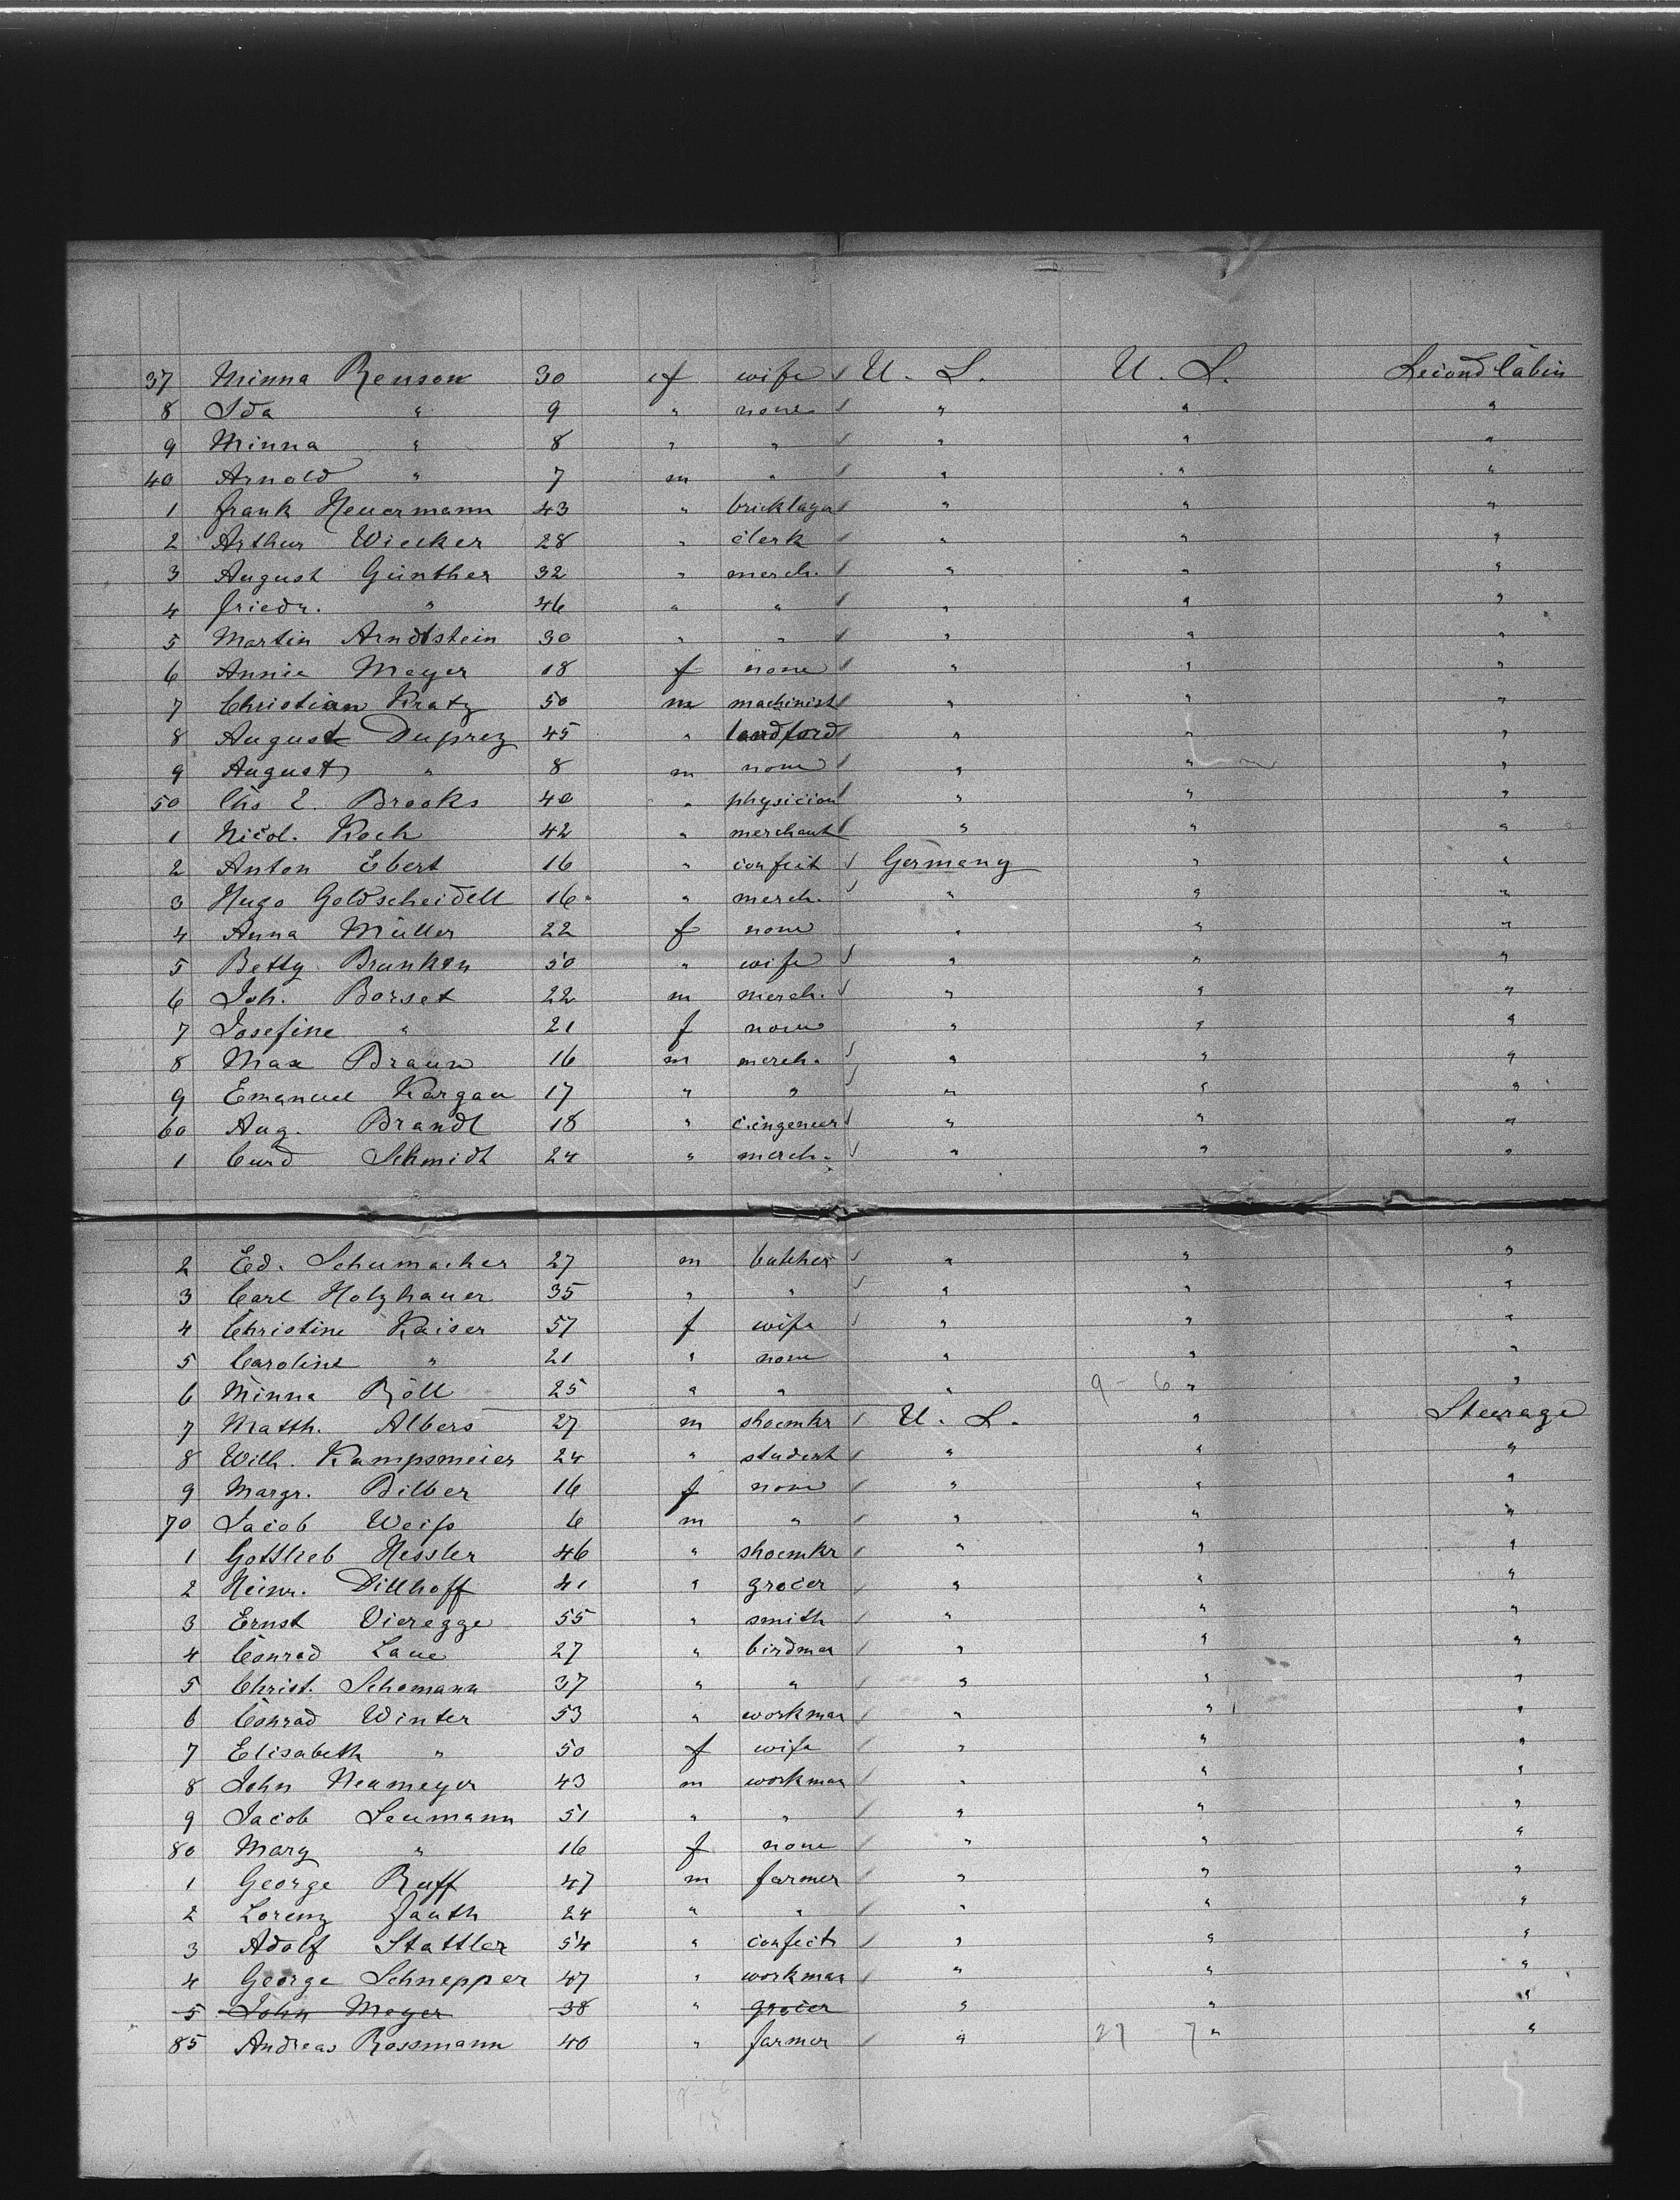 37 Minna Benson 30 f wife U. S. U. S. Second Cabin
8 Ida " 9 " none " " "
9 Minna " 8 " " " " "
40 Arnold " 7 m " " " "
1 Frank Heuermann 43 " bricklayer " " "
2 Arthur Wiecker 28 " clerk " " "
3 August Günther 32 " merch. " " "
4 Friedr. " 46 " " " " "
5 Martin Arndtstein 30 " " " " "
6 Annie Meyer 18 f none " " "
7 Christian Kratz 50 m machinist " " "
8 August Duprez 45 " landlord " " "
9 August " 8 m none " " "
50 Chs E. Brooks 40 " physician " " "
1 Nicol. Koch 42 " merchant " " "
2 Anton Ebert 16 " confect Germany " "
3 Hugo Goldscheidell 16 " merch. " " "
4 Anna Müller 22 f none " " "
5 Betty Brunken 50 " wife " " "
6 Joh. Borset 22 m merch. " " "
7 Josefine " 21 f none " " "
8 Max Braun 16 m merch. " " "
9 Emanuel Kargau 17 " " " " "
60 Aug. Brandt 18 " c.ingeneur " " "
1 Curd Schmidt 24 " merch. " " "
2 Ed. Schumacher 27 m butcher " " "
3 Carl Holzhauer 35 " " " " "
4 Christine Kaiser 57 f wife " " "
5 Caroline " 21 " none " " "
6 Minna Röll 25 " " " 9 - 6 " "
7 Matth. Albers 27 m shoemkr U. S. " Steerage
8 Wilh. Kampsmeier 24 " student " " "
9 Margr. Bilber 16 f none " " "
70 Jacob Weiß 6 m " " " "
1 Gottlieb Hessler 46 " shoemkr " " "
2 Heinr. Dillhoff 41 " grocer " " "
3 Ernst Vieregge 55 " smith " " "
4 Conrad Laue 27 " birdman " " "
5 Christ. Schomann 37 " " " " "
6 Conrad Winter 53 " workman " " "
7 Elisabeth " 50 f wife " " "
8 John Neumeyer 43 m workman " " "
9 Jacob Leumann 51 " " " " "
80 Mary " 16 f none " " "
1 George Ruff 47 m farmer " " "
2 Lorenz Jauth 24 " " " " "
3 Adolf Stattler 54 " confect " " "
4 George Schnepper 47 " workman " " "
5 John Meyer 38 " grocer " " "
85 Andreas Rossmann 40 " farmer " 27 7 " "